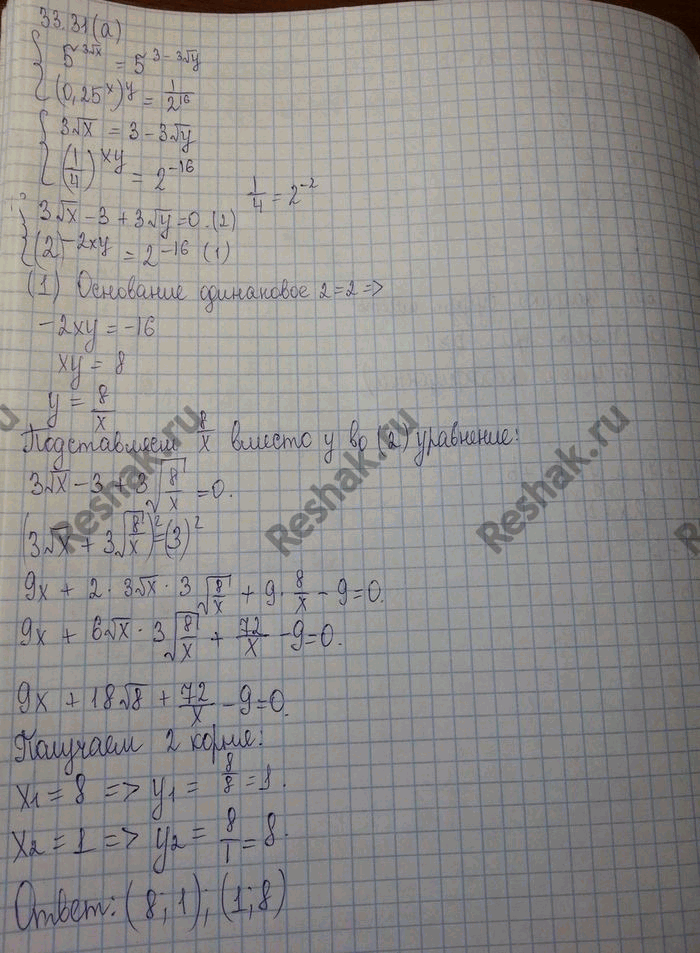 33.31(а)
5^{3√x} = 5^{3-3√y}
(0,25^x)^y = 1/2^{16}
3√x = 3 - 3√y
(1/4)^{xy} = 2^{-16}
1/4 = 2^{-2}
3√x - 3 + 3√y = 0. (2)
(2)^{-2xy} = 2^{-16} (1)
(1) Основание одинаковое 2=2 =>
-2xy = -16
xy = 8
y = 8/x
Подставляем 8/x вместо y во (2) уравнение:
3√x - 3 + 3√(8/x) = 0.
(3√x + 3√(8/x))^2 = (3)^2
9x + 2 · 3√x · 3√(8/x) + 9 · 8/x - 9 = 0.
9x + 6√x · 3√(8/x) + 72/x - 9 = 0.
9x + 18√8 + 72/x - 9 = 0.
Получаем 2 корня:
x1 = 8 => y1 = 8/8 = 1.
x2 = 1 => y2 = 8/1 = 8.
Ответ: (8; 1); (1; 8)
Reshak.ru
Reshak.ru
Reshak.ru